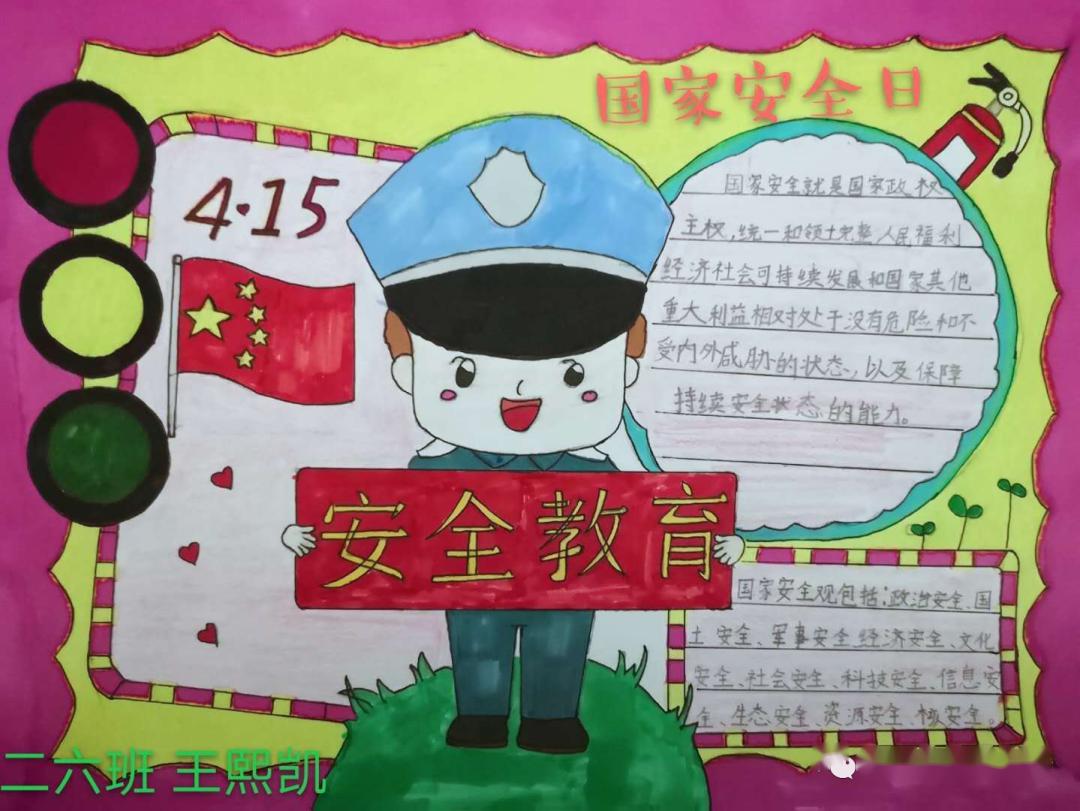 国家安全日
4·15
国家安全就是国家政权
主权,统一和领土完整人民福利
经济社会可持续发展和国家其他
重大利益相对处于没有危险和不
受内外威胁的状态,以及保障
持续安全状态的能力。
安全教育
国家安全观包括:政治安全、国
土安全、军事安全、经济安全、文化
安全、社会安全、科技安全、信息安
全、生态安全、资源安全、核安全。
二六班 王熙凯